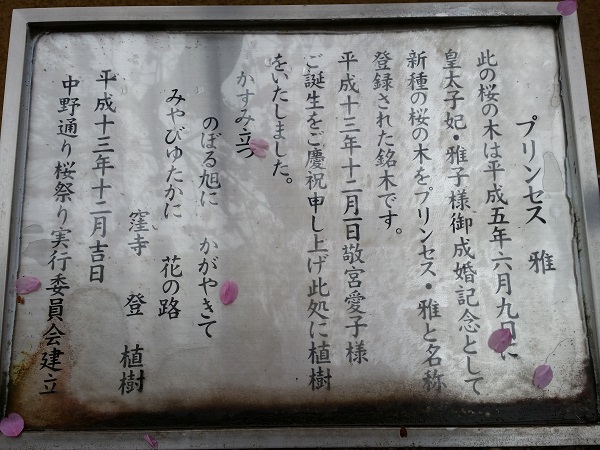 プリンセス 雅
此の桜の木は平成五年六月九日に
皇太子妃・雅子様御成婚記念として
新種の桜の木をプリンセス・雅と名称
登録された銘木です。
平成十三年十二月一日敬宮愛子様
ご誕生をご慶祝申し上げ此処に植樹
をいたしました。
かすみ立つ
のぼる旭に かがやきて
みやびゆたかに 花の路
窪寺 登 植樹
平成十三年十二月吉日
中野通り桜祭り実行委員会建立